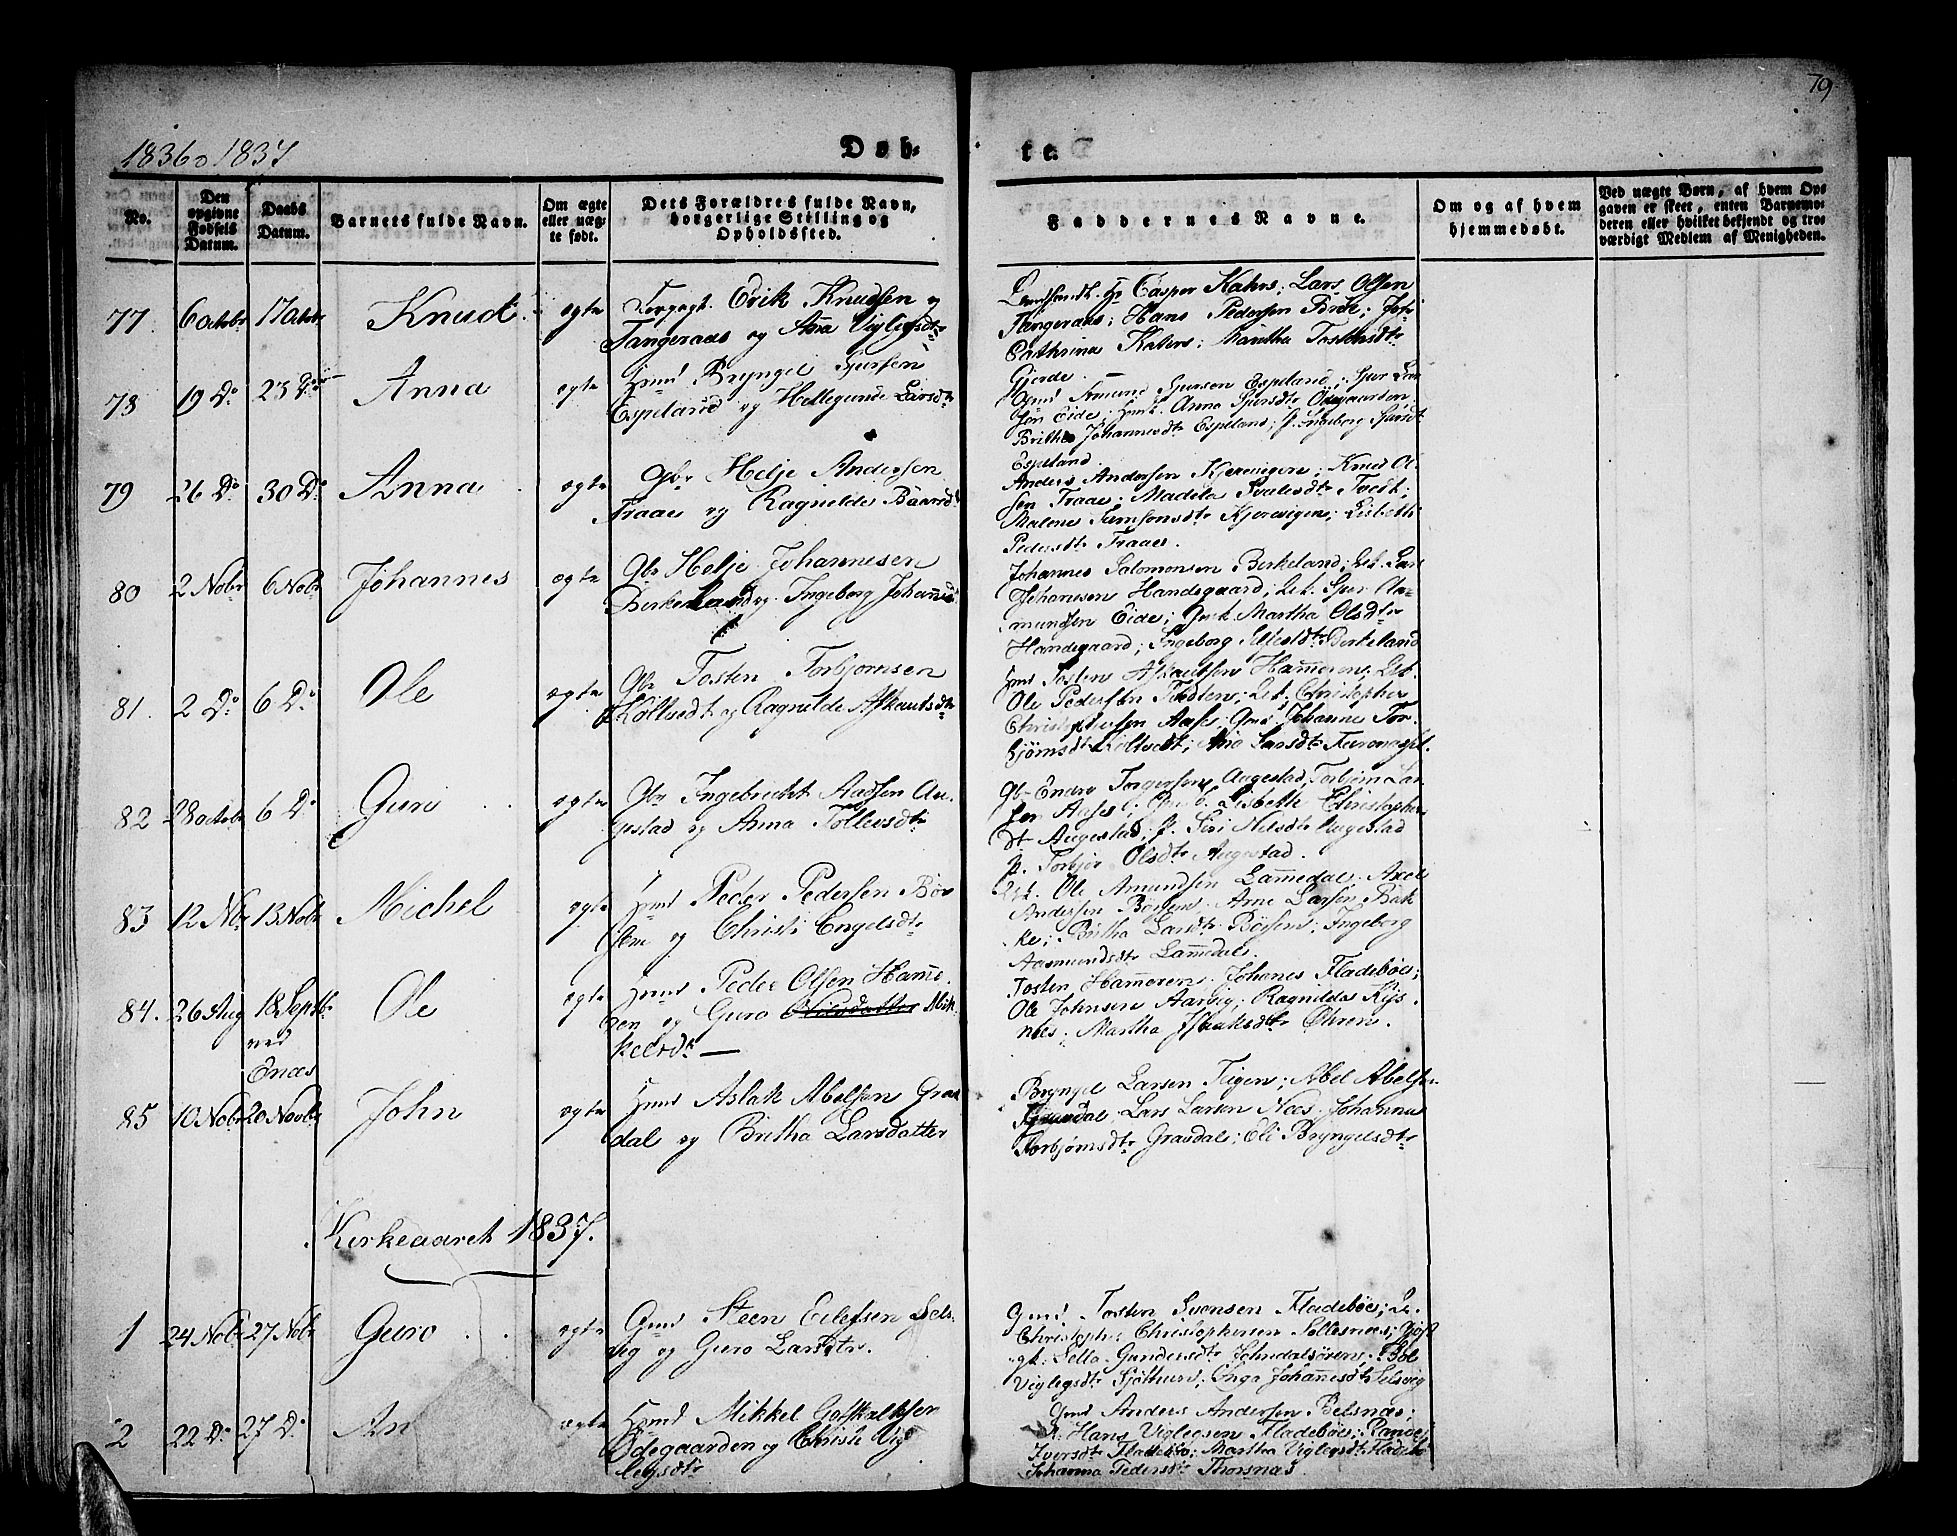 79
1836 o 1837
Døb-
te.
No.
Den opgivne Fødsels Datum.
Daabs Datum.
Barnets fulde Navn.
Om ægte eller uægte født.
Dets Forældres fulde Navn, borgerlige Stilling og Opholdssted.
Faddernes Navne.
Om og af hvem hjemmedøbt.
Ved uægte Børn, af hvem Opgaven er skeet, enten Barnemoderen eller hvilket bekjendt og troværdigt Medlem af Menigheden.
77 6 Octobr 17 Octobr Knud ægte
Erik Knudsen
Tangeraas og Ana Viglegsdtr
Casper Kahrs; Lars Olsen
Tangeraas; Hans Pedersen
Cathrina Kahrs; Martha Tostensdtr
Gjerde
78 19 Do 23 Do Anna ægte
Hmd Bryngel Sjursen
Espeland og Hellegunde Larsdtr
Gmd Amund Sjursen Espeland; Sjur Lar
sen Eide; Anna Sjursdtr Ødegaarden
Brithe Johannesdtr Espeland; P. Ingeborg Sjursdtr
Espeland
79 26 Do 30 Do Anna ægte
Gbr Helje Andersen
Traae og Ragnilde Baardsdtr
Anders Andersen Kjerevigen; Knud Ol
sen Traae; Madela
Malene Samsonsdtr Kjerevigen; Lisbeth
Pedersdtr Traae.
80 2 Nobr 6 Nobr Johannes ægte
Gbr Helje Johannesen
Birkeland og Ingeborg Johannesdtr
Johannes Salomonsen Birkeland; Lars
Johannesen Handegaard; Sjur Aa-
mundsen Eide; Martha Olsdtr
Handegaard; Ingeborg Birkeland
81. 2 Do 6 Do Ole ægte
Gbr Tosten Torbjørnsen
Koltvedt og Ragnilde Askautsdtr
Hmd Tosten Askautsen Hammeren;
Ole Pedersen Christopher
Christophersen Aase; Johanne Tor-
bjørnsdtr Koltvedt; Larsdtr
82 28 Octobr 6 Do Guro ægte
Gbr Ingebricht Aadsen Au-
gestad og Anna Tollevsdtr
Gbr Enar Torgersen Augestad, Torbjørn Lar-
sen Aase; Lisbeth Christopher
dtr Augestad; P. Siri Nilsdtr Augestad
P. Torbjør Olsdtr Augestad.
83 12 Nobr 13 Nobr Michel ægte
Hmd Peder Pedersen Bør
sem og Christi Engelsdtr
Ole Amundsen Lammedal Axel
Andersen Børsem Arne Larsen Bak
ke; Britha Larsdtr Børsem; Ingeborg
Aasmundsdtr Lammedal.
84. 26 Aug 18 Septbr Ole ægte
ved
Ænæs
Hmd Peder Olsen Hamme-
ren og Guro Olesdatter Mik
kelsdtr —
Tosten Hammeren. Johanes Fladebøe;
Ole Johnsen Aarvig; Ragnilda
næs; Martha Isaaksdtr Øhren.
85 10 Nobr 20 Novbr John ægte
Hmd Aslak Abelsen Gras
dal og Britha Larsdatter
Bryngel Larsen Teigen; Abel Abelsen
Grasdal Lars Larsen Næs. Johanna
Torbjørnsdtr Grasdal; Eli Bryngelsdtr
Kirkeaaret 1837.
1 24 Nobr 27 Nobr Guro ægte
Gmd Steen Eilefsen Sels-
vig og Guro Larsdtr.
Gmd Tosten Svensen Fladebøe;
Christopher Christophersen Sollesnæs;
Gundersdtr
Viglegsdtr Inga Johannesdtr Selsvig
2 22 Do 27 Do An ægte
Hmd Mikkel Gotskalksen
Ødegaarden og Christi Vig
legsdtr
Gmd Anders Andersen Belsnæs;
Hans Viglegsen Fladebøe; Rande
Iversdtr Fladebøe; Martha Viglegsdtr Fladebø
Johanna Pedersdtr Thorsnæs.